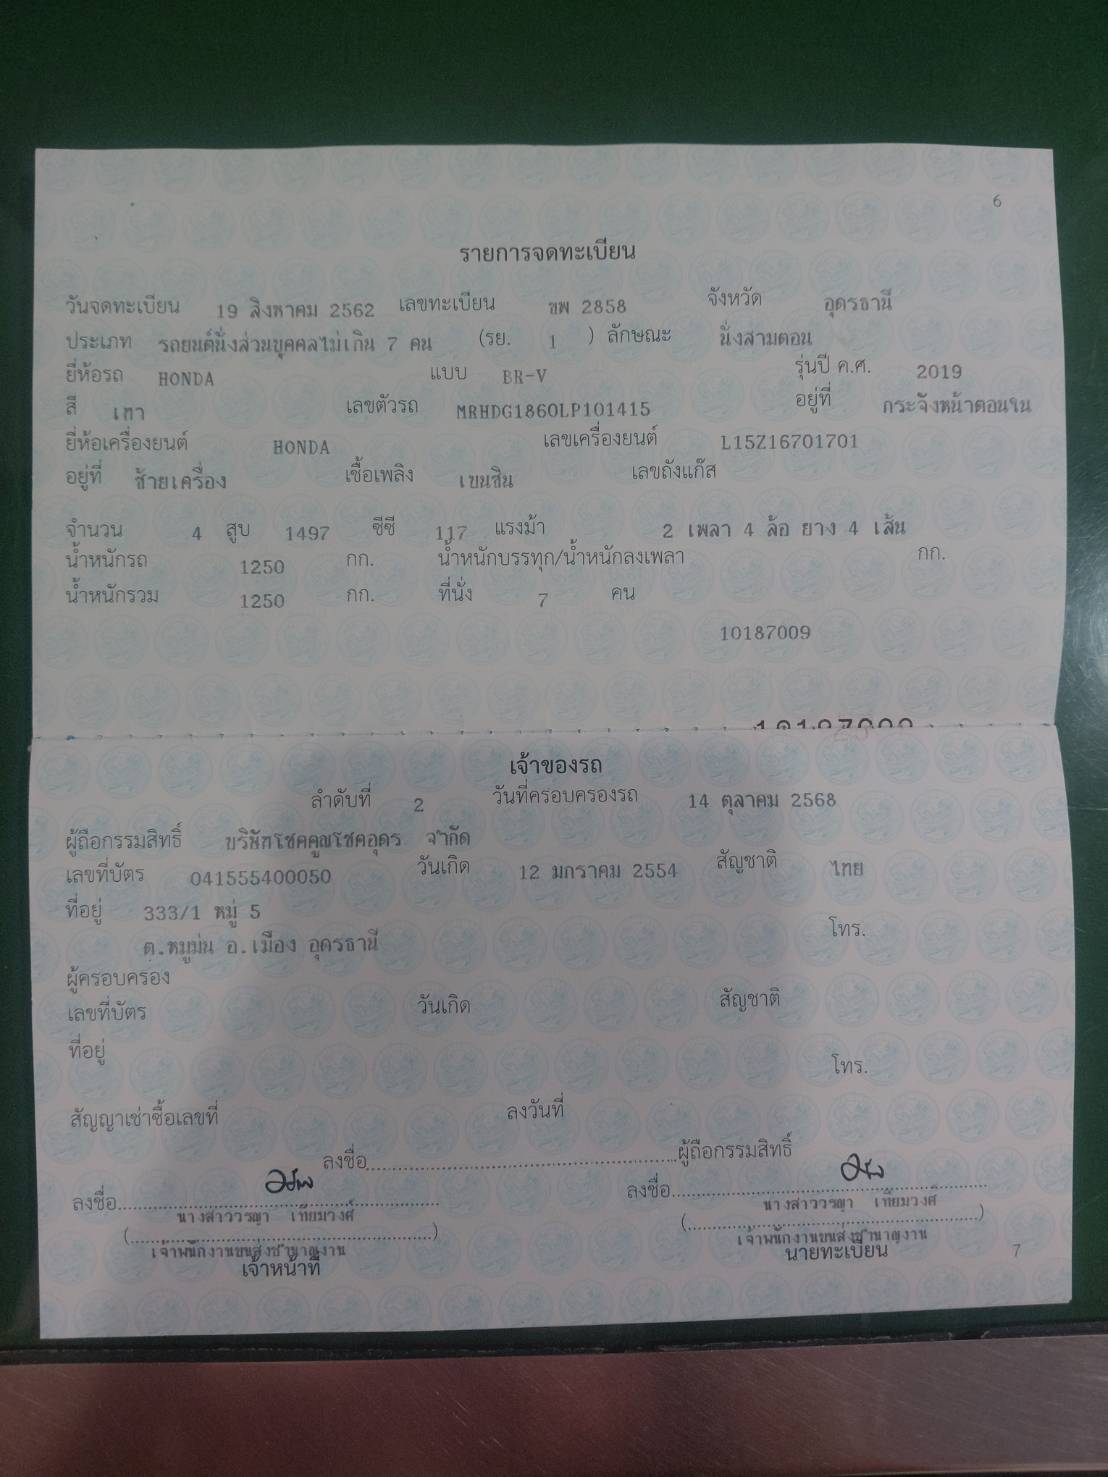 6
รายการจดทะเบียน
วันจดทะเบียน 19 สิงหาคม 2562 เลขทะเบียน ขพ 2858 จังหวัด อุดรธานี
ประเภท รถยนต์นั่งส่วนบุคคลไม่เกิน 7 คน (รย. 1 ) ลักษณะ นั่งสามตอน
ยี่ห้อรถ HONDA แบบ BR-V รุ่นปี ค.ศ. 2019
สี เทา เลขตัวรถ MRHDG1860LP101415 อยู่ที่ กระจังหน้าตอนใน
ยี่ห้อเครื่องยนต์ HONDA เลขเครื่องยนต์ L15Z16701701
อยู่ที่ ซ้ายเครื่อง เชื้อเพลิง เบนซิน เลขถังแก๊ส
จำนวน 4 สูบ 1497 ซีซี 117 แรงม้า 2 เพลา 4 ล้อ ยาง 4 เส้น
น้ำหนักรถ 1250 กก. น้ำหนักบรรทุก/น้ำหนักลงเพลา กก.
น้ำหนักรวม 1250 กก. ที่นั่ง 7 คน
10187009
เจ้าของรถ
ลำดับที่ 2 วันที่ครอบครองรถ 14 ตุลาคม 2568
ผู้ถือกรรมสิทธิ์ บริษัทโชคคูณโชคอุดร จำกัด
เลขที่บัตร 041555400050 วันเกิด 12 มกราคม 2554 สัญชาติ ไทย
ที่อยู่ 333/1 หมู่ 5 โทร.
ต.หมูม่น อ.เมือง อุดรธานี
ผู้ครอบครอง
เลขที่บัตร วันเกิด สัญชาติ
ที่อยู่ โทร.
สัญญาเช่าซื้อเลขที่ ลงวันที่
ลงชื่อ ผู้ถือกรรมสิทธิ์
ลงชื่อ ลงชื่อ
นางสาววรญา เทียมวงศ์ นางสาววรญา เทียมวงศ์
( ) ( )
เจ้าพนักงานขนส่งชำนาญงาน เจ้าพนักงานขนส่งชำนาญงาน
เจ้าหน้าที่ นายทะเบียน 7